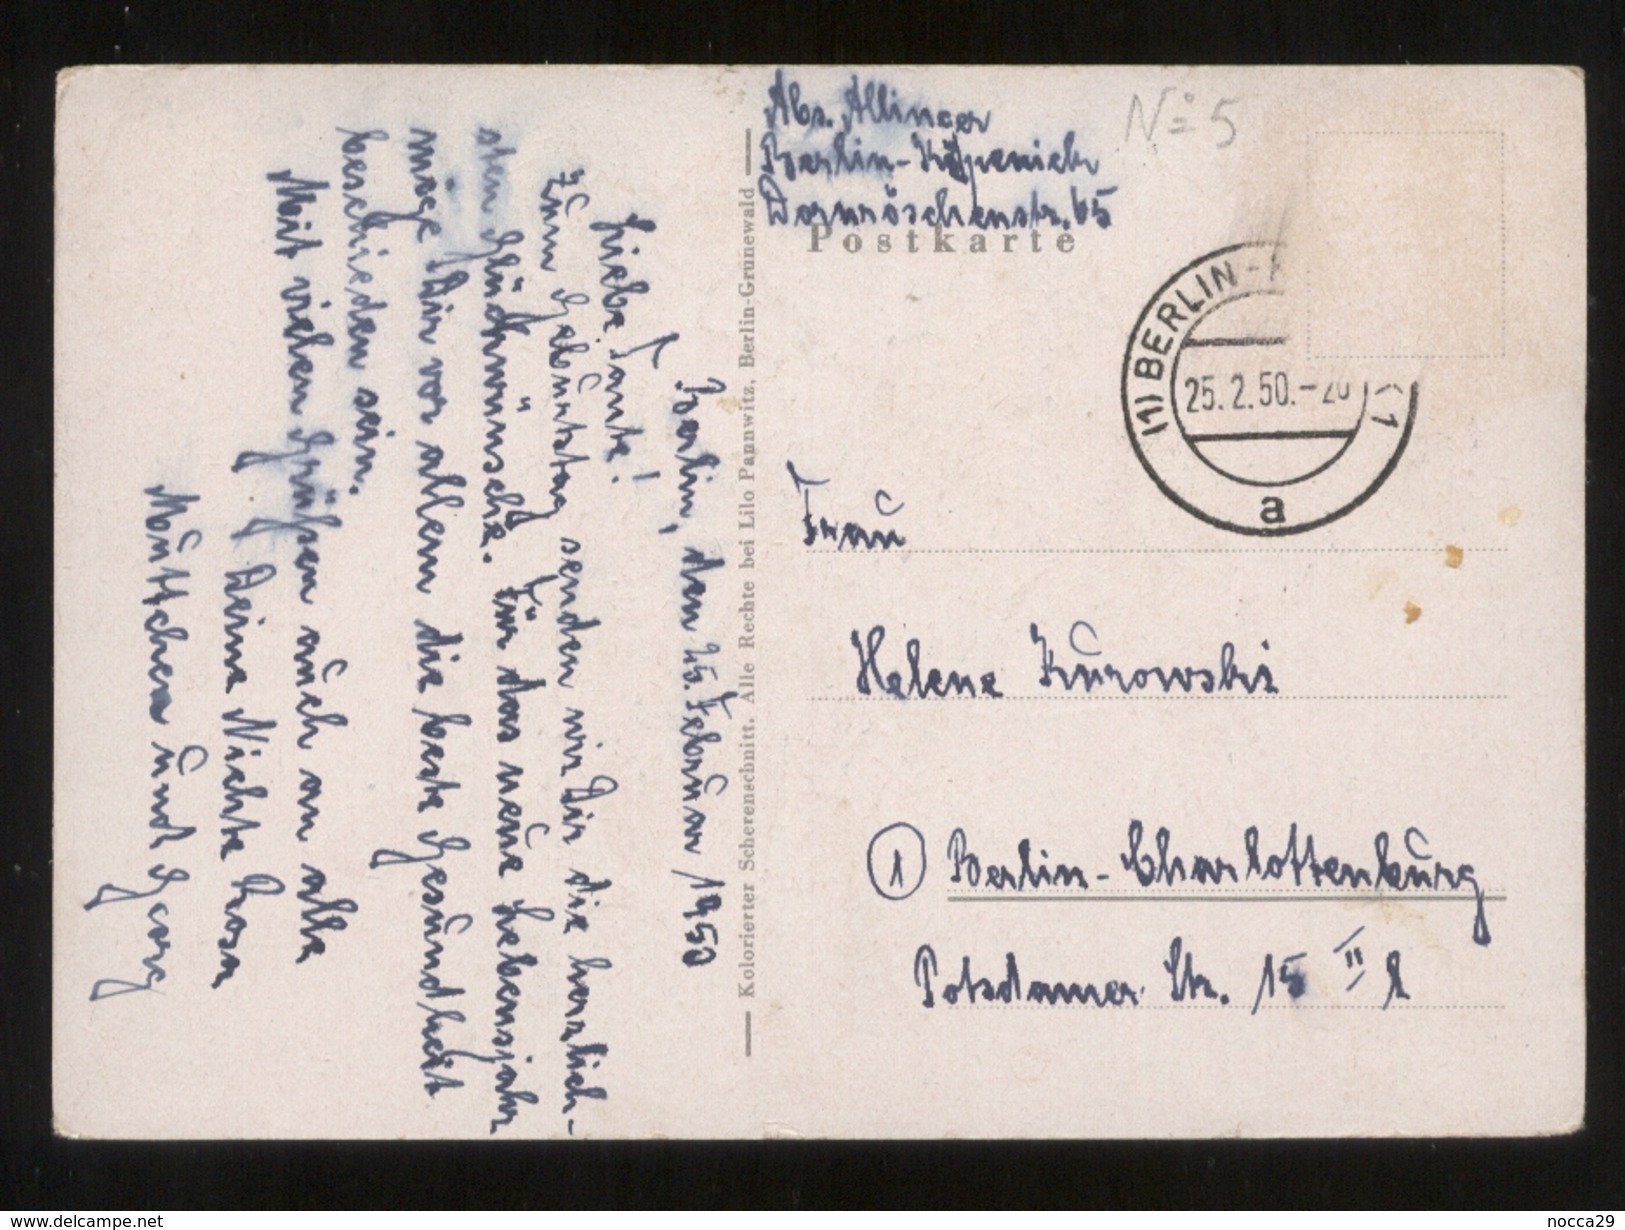 Berlin, den 25. Februar 1950
Liebe Tante!
Zum Geburtstag senden wir Dir die herzlich-
sten Glückwünsche. Für das neue Lebensjahr
möge Dir vor allem die beste Gesundheit
beschieden sein.
Mit vielen Grüßen auch an alle
Deine Nichte Rosa
Muttchen und Georg
Kolorierter Scherenschnitt. Alle Rechte bei Lilo Pannwitz, Berlin-Grunewald
Abs. Allinger
Berlin-Köpenick
Dornröschenstr. 65
N= 5
Postkarte
(1) BERLIN-
25.2.50.-20
1
a
Frau
Helene Kurowski
1 Berlin-Charlottenburg
Potsdamer Str. 15 II l
www.delcampe.net
nocca29